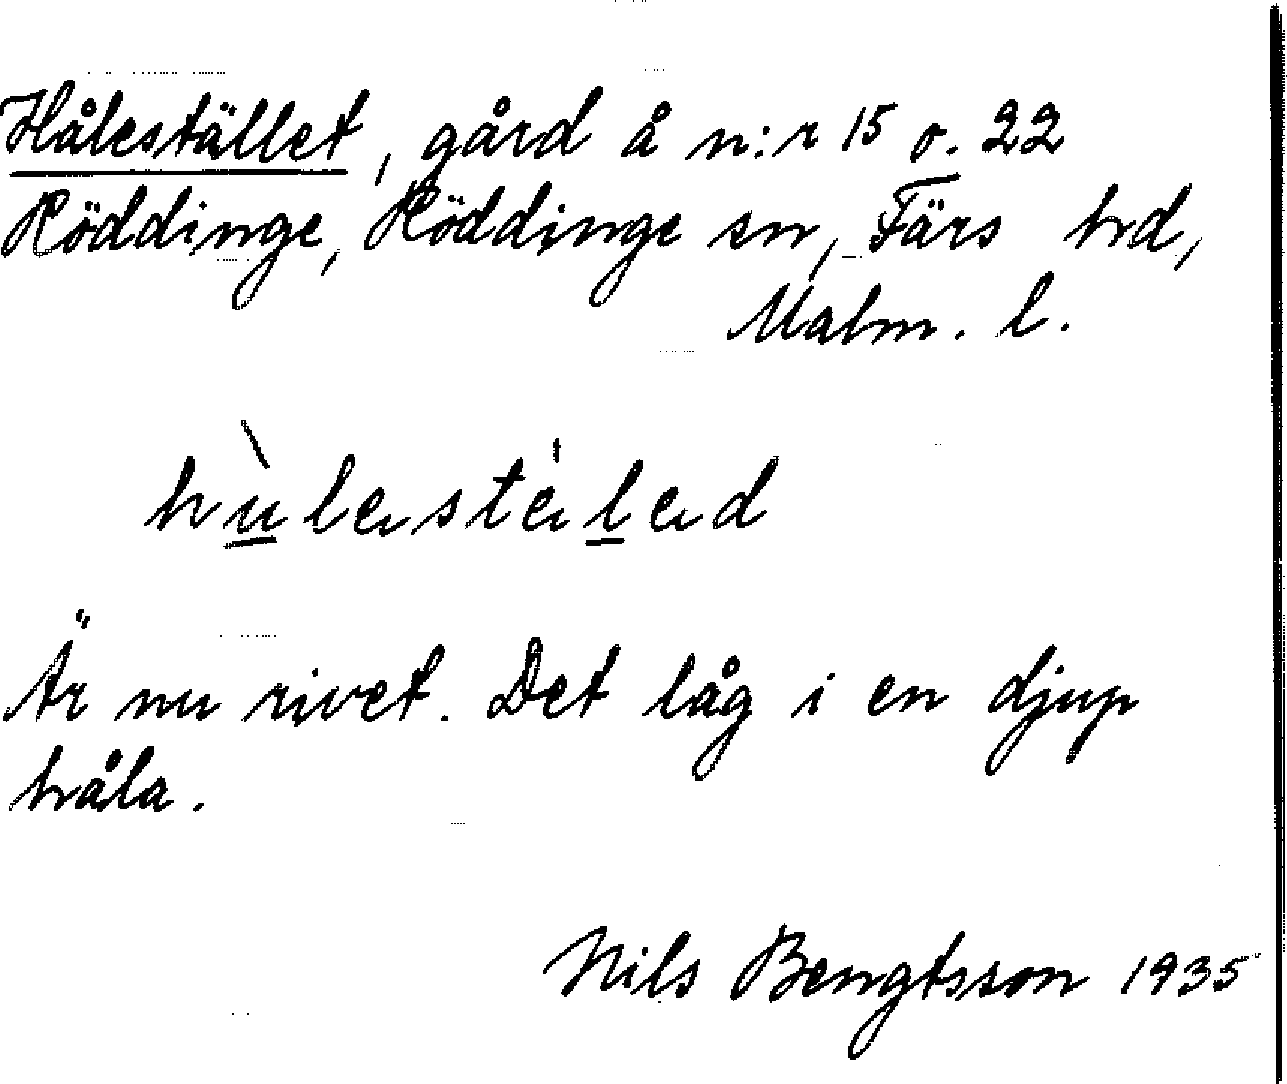 Hålestället, gård å n:r 15 o. 22
Röddinge, Röddinge sn, Färs hd,
Malm. l.
hùlestéled
Är nu rivet. Det låg i en djup
håla.
Nils Bengtsson 1935